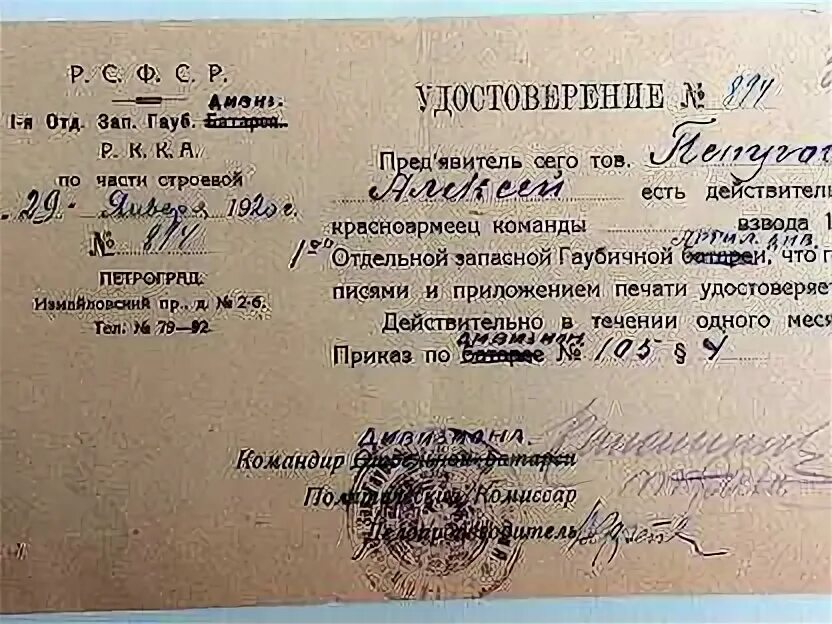 Р. С. Ф. С. Р.
дивиз.
1-я Отд. Зап. Гауб. Батареи.
Р. К. К. А.
по части строевой
29 Января 1920 г.
№ 874
ПЕТРОГРАД.
Измайловский пр., д. № 2-б.
Тел. № 79—92.
УДОСТОВЕРЕНИЕ № 874
Пред'явитель сего тов.
Алексей есть действитель
красноармеец команды взвода 1
Артил. див.
1ой Отдельной запасной Гаубичной батареи, что
писями и приложением печати удостоверяет
Действительно в течении одного меся
дивизион.
Приказ по батарее № 105 § 4
дивизиона.
Командир Отдельной Батареи
Политический Комиссар
Делопроизводитель